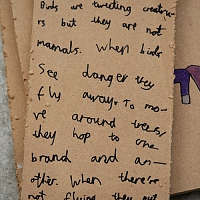 Birds are tweeting creatue-
rs but they are not
mamals. When birds
See danger they
fly away. To mo-
ve around trees/
they hop to one
brand and an-
other. When there's
not flying they